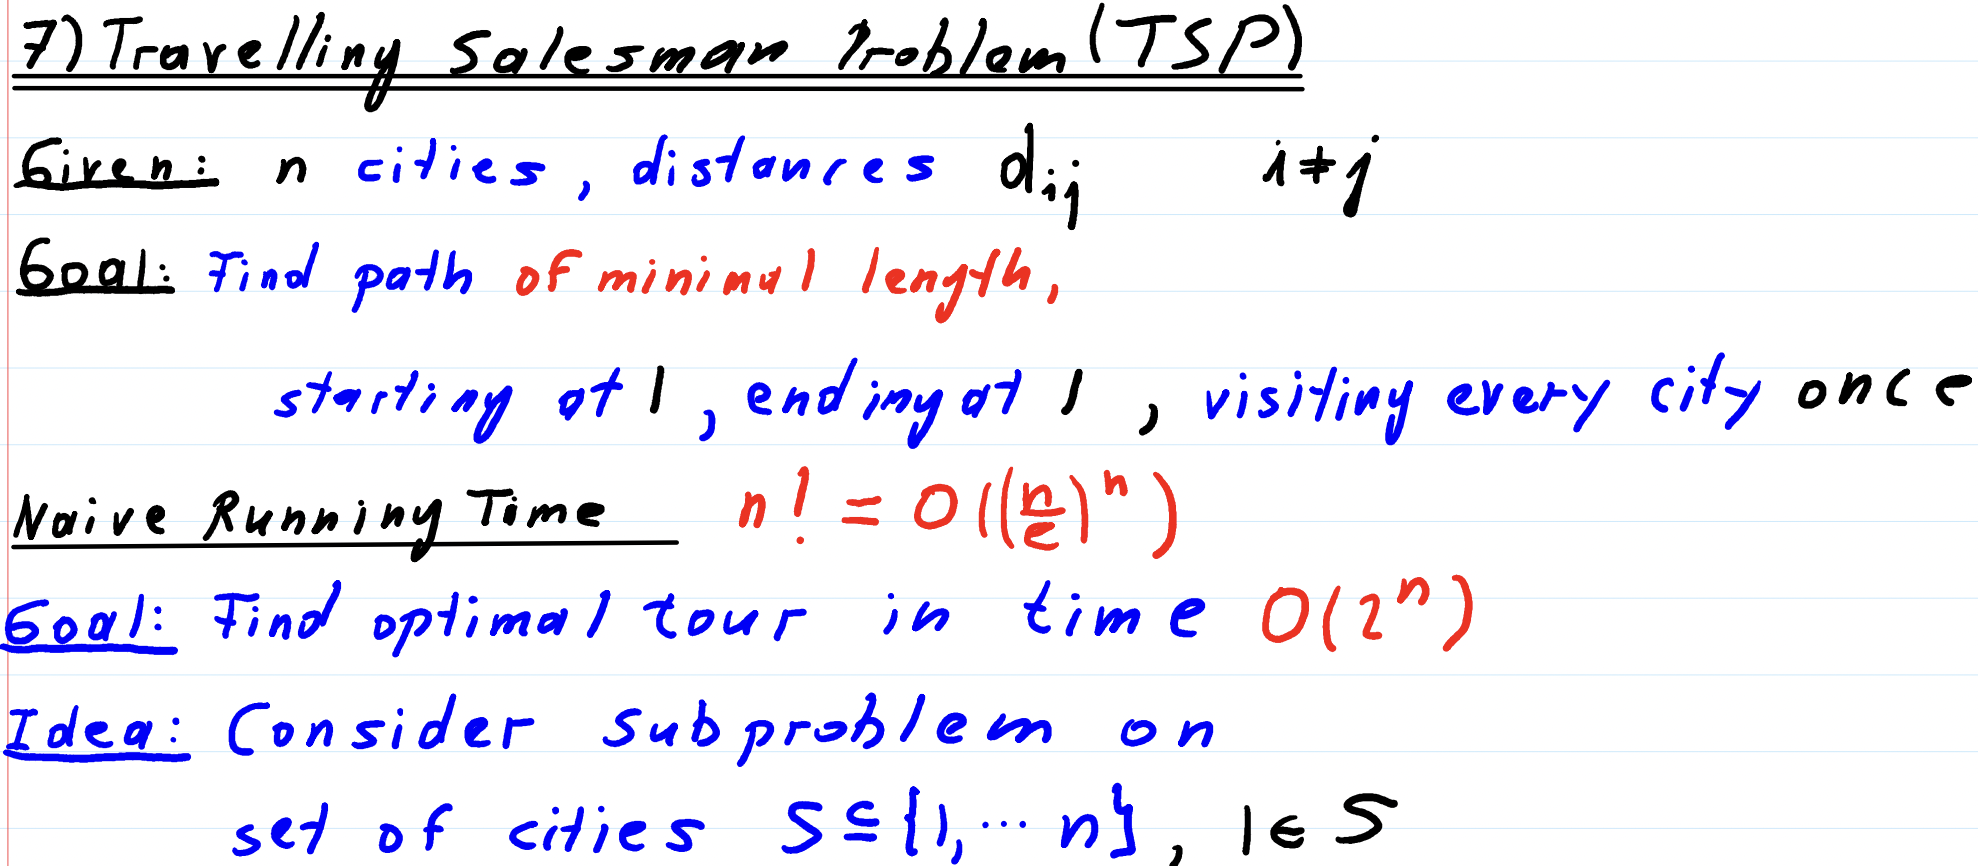 7) Travelling Salesman Problem (TSP)
Given: n cities, distances d_{ij} i ≠ j
Goal: Find path of minimal length,
starting at 1, ending at 1, visiting every city once
Naive Running Time n! = O((n/e)^n)
Goal: Find optimal tour in time O(2^n)
Idea: Consider subproblem on
set of cities S ⊆ {1, ... n}, 1 ∈ S